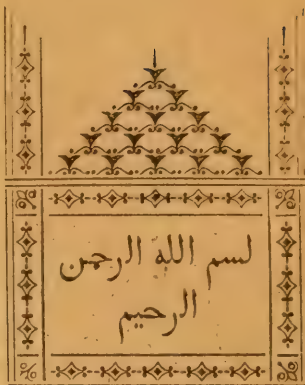 لسم الله الرحمن
الرحيم